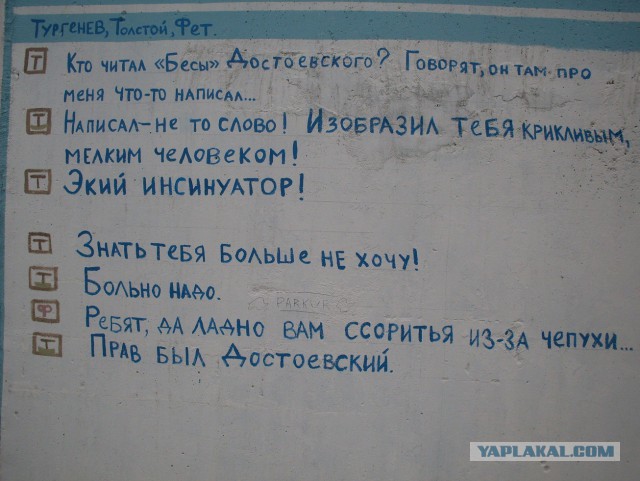 Тургенев, Толстой, Фет.
Т Кто читал «Бесы» Достоевского? Говорят, он там про
меня что-то написал...
Т Написал-не то слово! Изобразил тебя крикливым,
мелким человеком!
Т Экий инсинуатор!
Т Знать тебя больше не хочу!
Т Больно надо.
Ф Ребят, да ладно вам ссоритья из-за чепухи...
Т Прав был Достоевский.
YAPLAKAL.COM